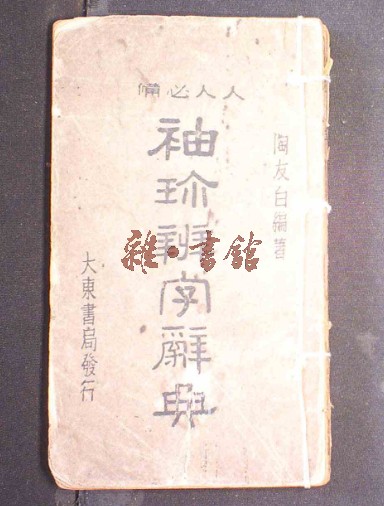 人人必備
陶友白編著
袖珍辨字辭典
大東書局發行
雜·書館